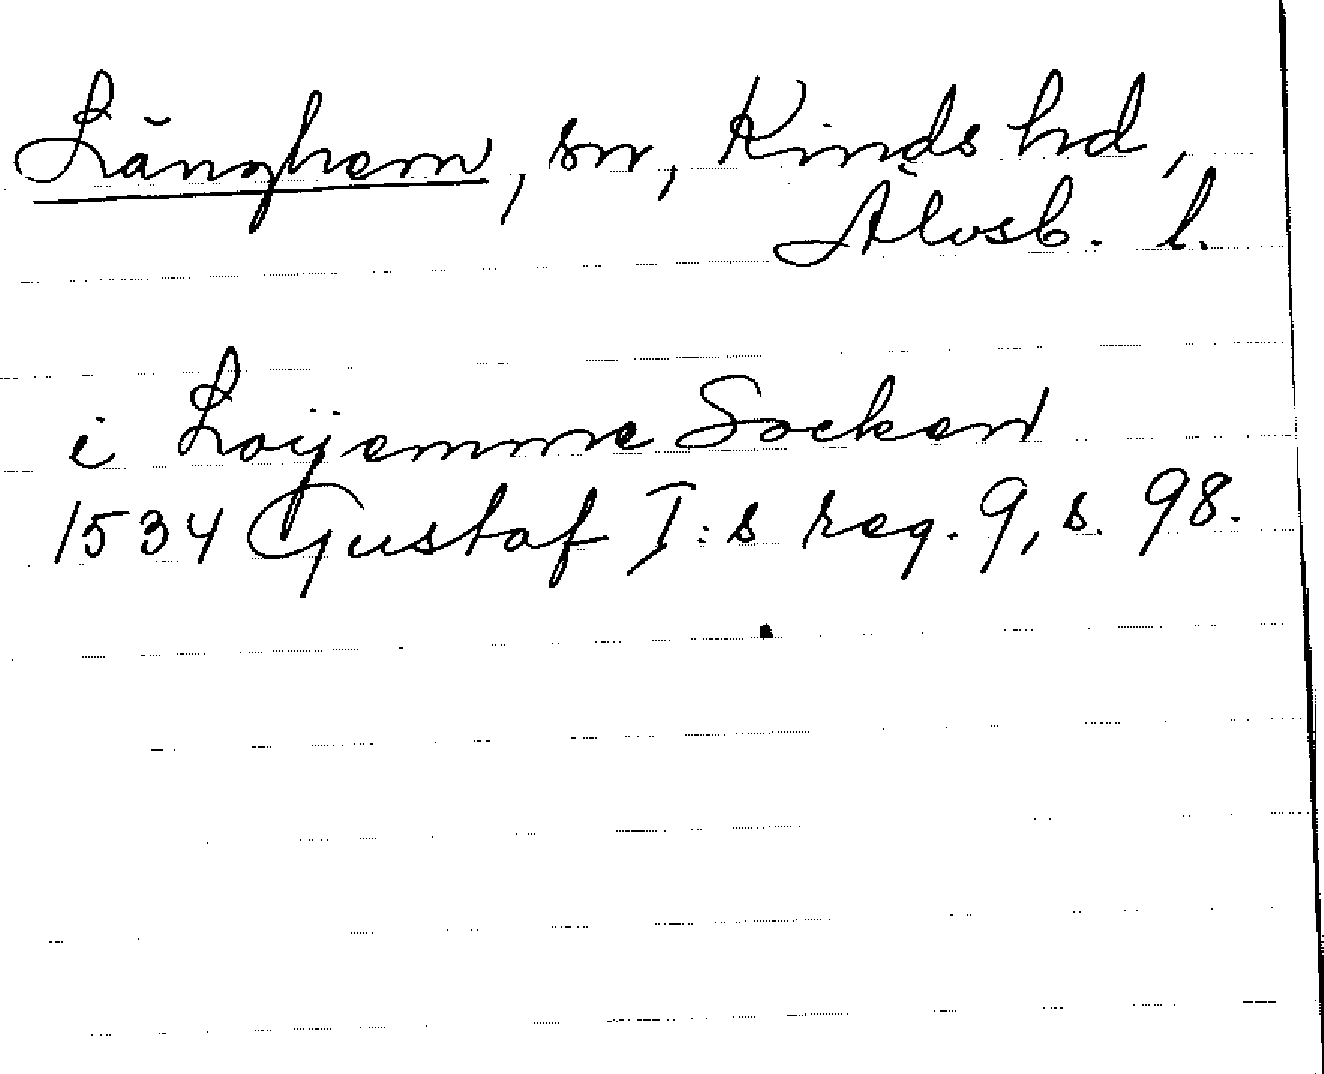 Långhem, sn, Kinds hd,
Älvsb. l.
i Loÿemme Socken
1534 Gustaf I:s reg. 9, s. 98.